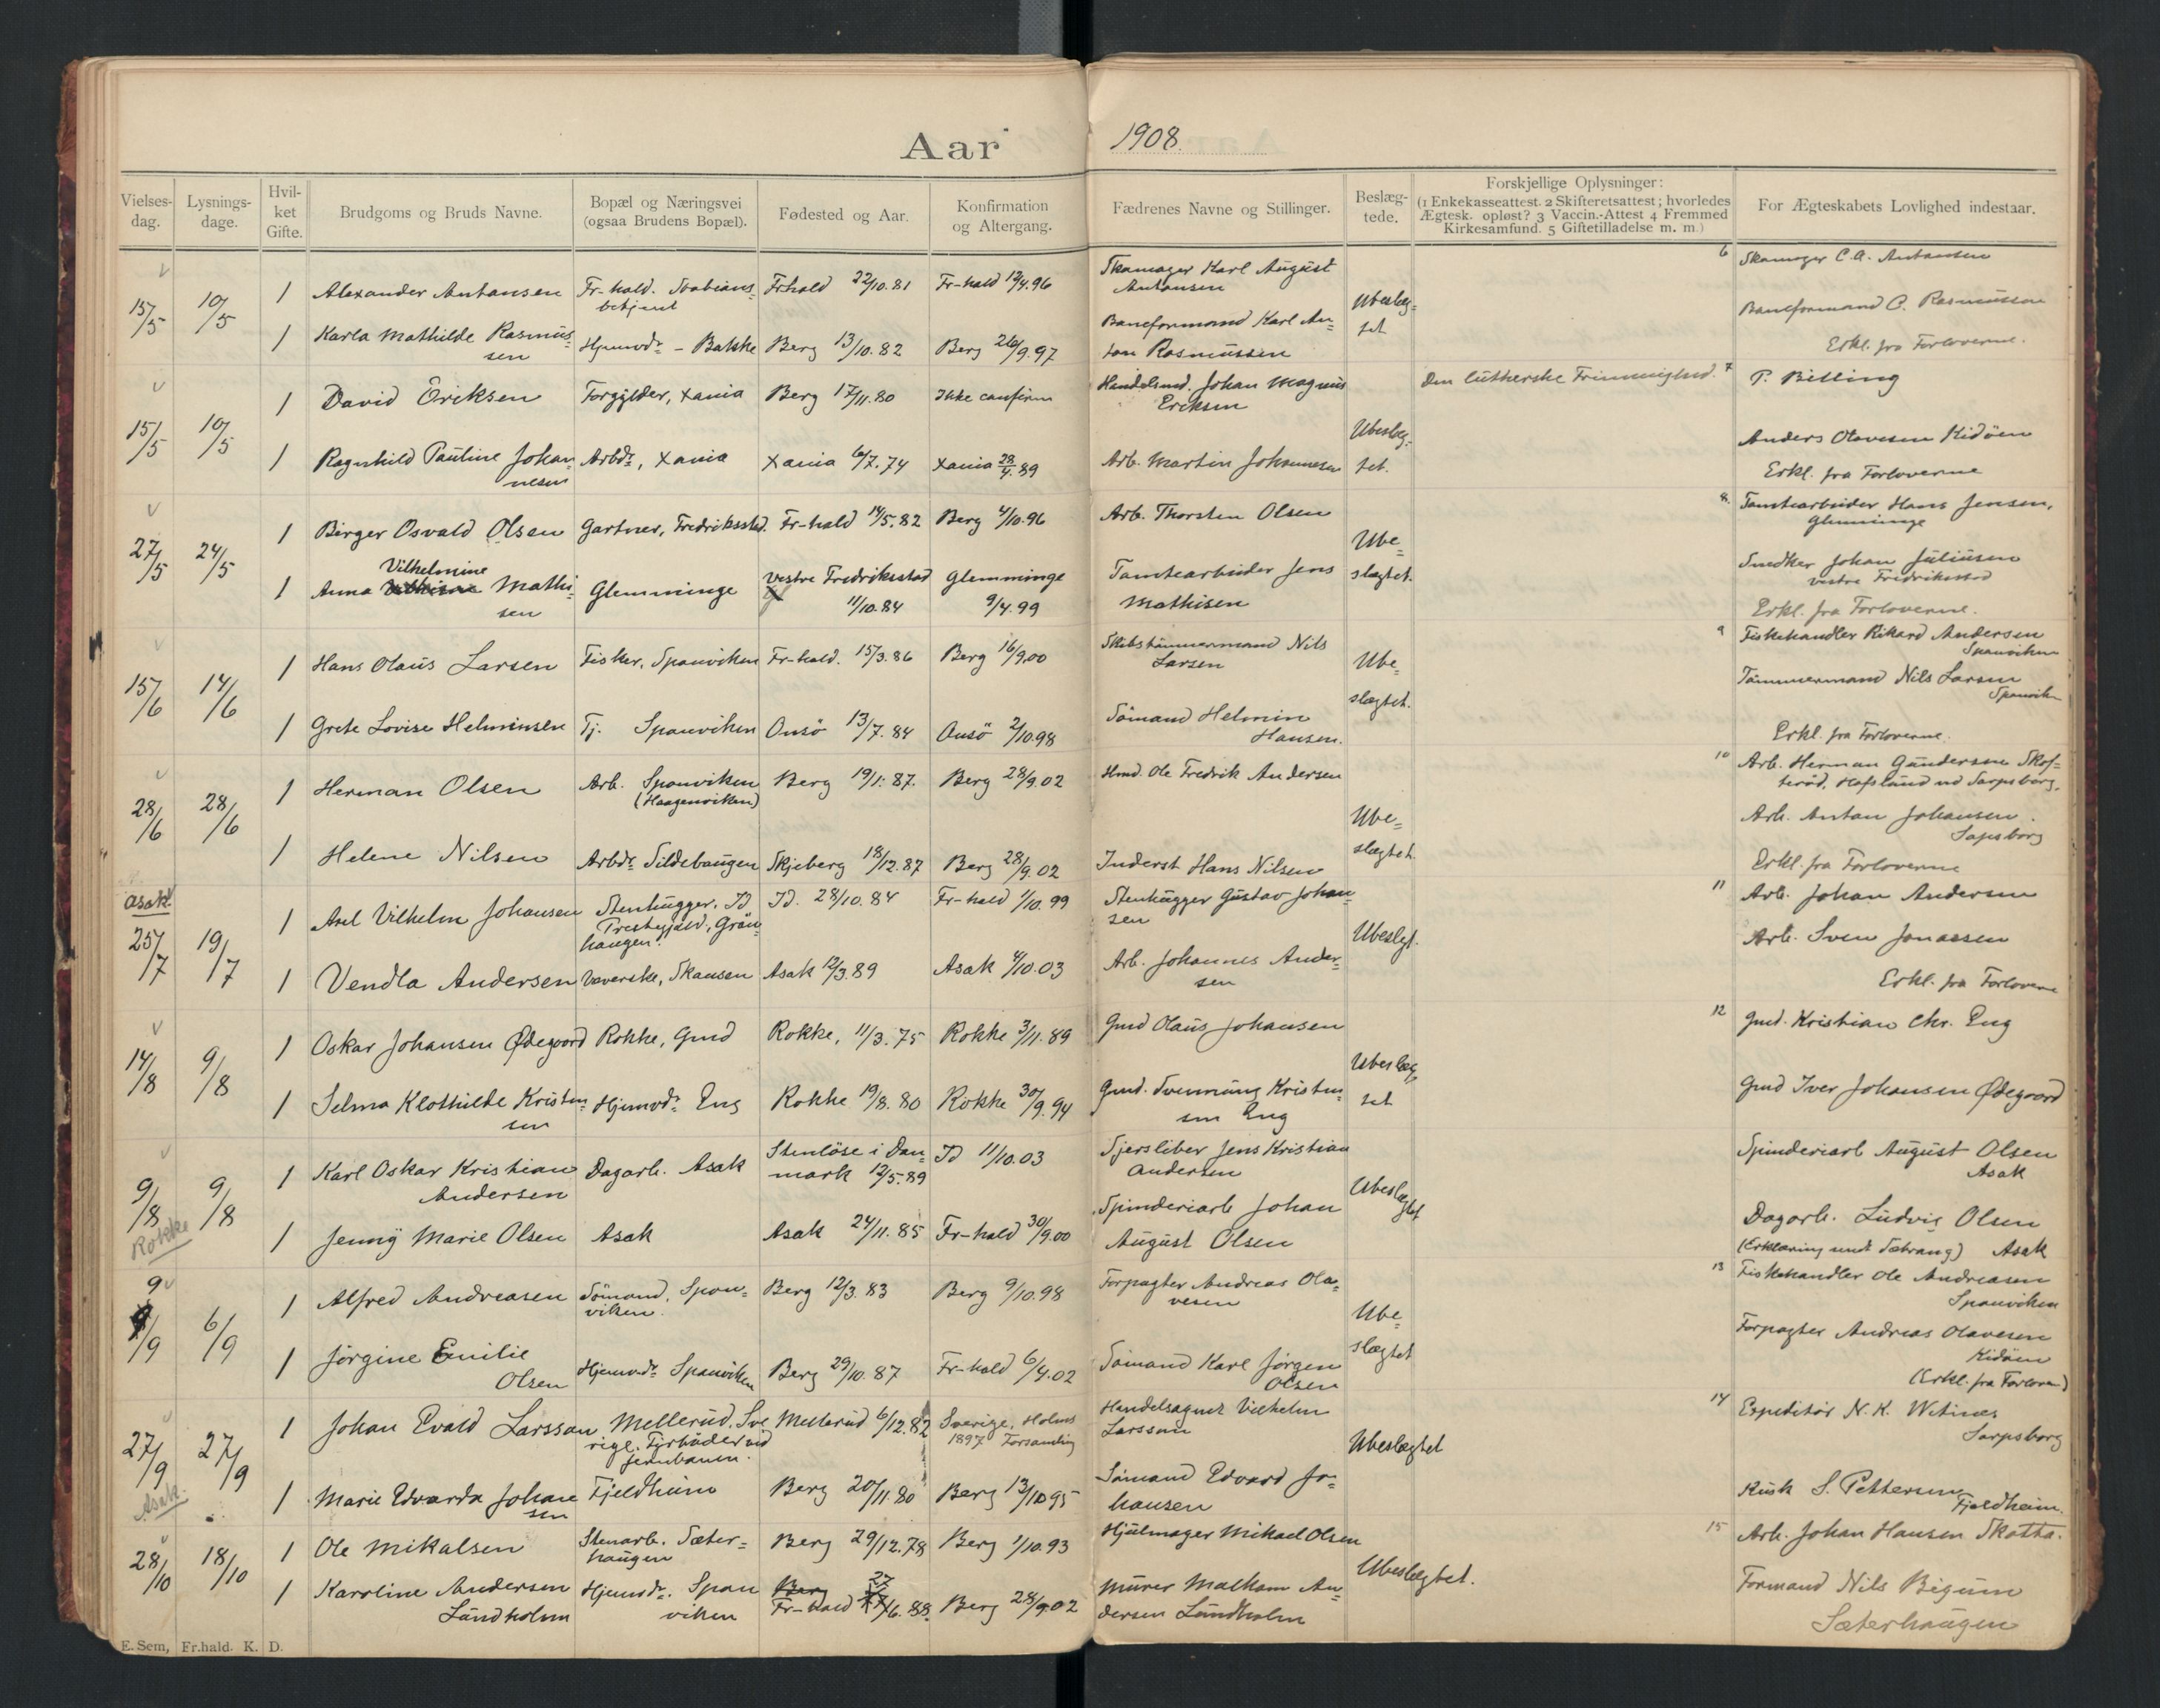 Aar 1908.
Vielses-dag. Lysnings-dage. Hvil-ket Gifte. Brudgoms og Bruds Navne. Bopæl og Næringsvei (ogsaa Brudens Bopæl). Fødested og Aar. Konfirmation og Altergang. Fædrenes Navne og Stillinger. Beslæg-tede. Forskjellige Oplysninger: (1 Enkekasseattest. 2 Skifteretsattest; hvorledes Ægtesk. opløst? 3 Vaccin.-Attest 4 Fremmed Kirkesamfund. 5 Giftetilladelse m. m.) For Ægteskabets Lovlighed indestaar.
15/5 10/5 1 Alexander Antonsen Fr-hald. betjent Frhald 22/10.81 Fr-hald 12/4.96 Skomager Karl August Antonsen Ubeslæg=tet 6 Skomager C. A. Antonsen
1 Karla Mathilde Rasmus=sen Hjemvdr – Bakke Berg 13/10.82 Berg 26/9.97 Baneformand Karl An=ton Rasmussen Baneformand C. Rasmussen
Erkl. fra Forloverne.
15/5 10/5 1 David Eriksen Forgylder, Xania Berg 17/11.80 Ikke confirm Handelsmd. Johan Magnus Eriksen Ubeslæg=tet. Den lutherske Frimenighed. 7 P. Billing
1 Ragnhild Pauline Johan=nesen Arbdr, Xania Xania 6/7.74 Xania 28/4.89 Arb. Martin Johannesen Anders Olavesen Kidøen
Erkl. fra Forloverne
27/5 24/5 1 Birger Osvald Olsen Gartner, Fredriksstad. Fr-hald 14/5.82 Berg 4/10.96 Arb. Thorsten Olsen Ube=slægtet. 8. Tomtearbeider Hans Jensen, Glemminge
1 Anna Vilhelmine Mathi=sen Glemminge Vestre Fredriksstad 11/10.84 Glemminge 9/4.99 Tomtearbeider Jens Mathisen Snedker Johan Juliusen vestre Fredriksstad
Erkl. fra Forloverne.
15/6 14/6 1 Hans Olaus Larsen Fisker, Sponviken Fr-hald. 15/3.86 Berg 16/9.00 Skibstømmermand Nils Larsen Ube=slægtet. 9 Fiskehandler Rikard Andersen Sponviken
1 Grete Lovise Helminsen Tj. Sponviken Onsö 13/7.84 Onsö 2/10.98 Sömand Helmin Hansen. Tömmermand Nils Larsen Sponviken
Erkl. fra Forloverne.
28/6 28/6 1 Herman Olsen Arb. Sponviken (Haagenviken) Berg 19/1.87. Berg 28/9.02 Hmd. Ole Fredrik Andersen Ube=slægtet. 10 Arb. Herman Gundersen Hafslund ved Sarpsborg.
1 Helene Nilsen Arbdr. Sildebaugen Skjeberg 18/12.87 Berg 28/9.02 Inderst Hans Nilsen Arb. Anton Johansen. Sapsborg
Erkl. fra Forloverne
Asak
25/7 19/7 1 Axel Vilhelm Johansen Stenhugger, Id Prestegjæld, Grön=haugen. Id. 28/10.84 Fr-hald 1/10.99 Stenhugger Gustav Johan=sen Ubeslgt. 11 Arb. Johan Andersen
1 Vendla Andersen Væverske, Skansen Asak 12/3.89 Asak 4/10.03 Arb. Johannes Ander=sen Arb. Sven Jonassen
Erkl. fra Forloverne
14/8 9/8 1 Oskar Johansen Ødegaard Rokke, Gmd Rokke, 11/3.75 Rokke 3/11.89 Gmd Olaus Johansen Ubeslæg tet 12 Gmd. Kristian Chr. Eng
1 Selma Klothilde Kristen=sen Hjemvdr. Eng Rokke 19/8.80 Rokke 30/9.94 Gmd. Svenning Kristen=sen Eng Gmd Iver Johansen Ødegaard
9/8 9/8 1 Karl Oskar Kristian Andersen Dagarb. Asak Stenlöse i Dan=mark 12/5.89 Id 11/10.03 Jens Kristian Andersen Ubeslægtet Spinderiarb August Olsen Asak
Rokke
1 Jenny Marie Olsen Asak Asak 24/11.85 Fr-hald 30/9.00 Spinderiarb Johan August Olsen Dagarb. Ludvig Olsen Asak
9/9 6/9 1 Alfred Andreasen Sömand, Spon=viken. Berg 12/3.83 Berg 9/10.98 Forpagter Andreas Ola=vesen Ube=slægtet 13 Fiskehandler Ole Andreasen Sponviken
1 Jörgine Emilie Olsen Hjemvdr. Sponviken Berg 29/10.87 Fr-hald 6/4.02 Sömand Karl Jörgen Olsen Forpagter Andreas Olavesen Kidøen
(Erkl. fra Forlovere)
27/9 27/9 1 Johan Evald Larsson Mellerud, Sve rige. Fyrböder ved Jernbanen. Mellerud 6/12.82 Sverige, Holms 1897 Forsamling Handelsagent Vilhelm Larsson Ubeslægtet 14 Expeditör N. K. Sarpsborg
Asak.
1 Marie Edvarda Johan sen Fjeldheim Berg 20/11.80 Berg 13/10 95 Sömand Edvard Jo=hansen Kusk S. Pettersen Fjeldheim.
28/10 18/10 1 Ole Mikalsen Stenarb. Sæter=haugen Berg 29/12.78 Berg 1/10.93 Hjulmager Mikael Olsen Ubeslægtet. 15 Arb. Johan Hansen
1 Karoline Andersen Lundholm Hjemvdr. Spon viken Berg Fr-hald 27/6.88. Berg 28/9.02 Murer An=dersen Lundholm Formand Nils
Sæterhaugen
E. Sem, Fr.hald. K. D.